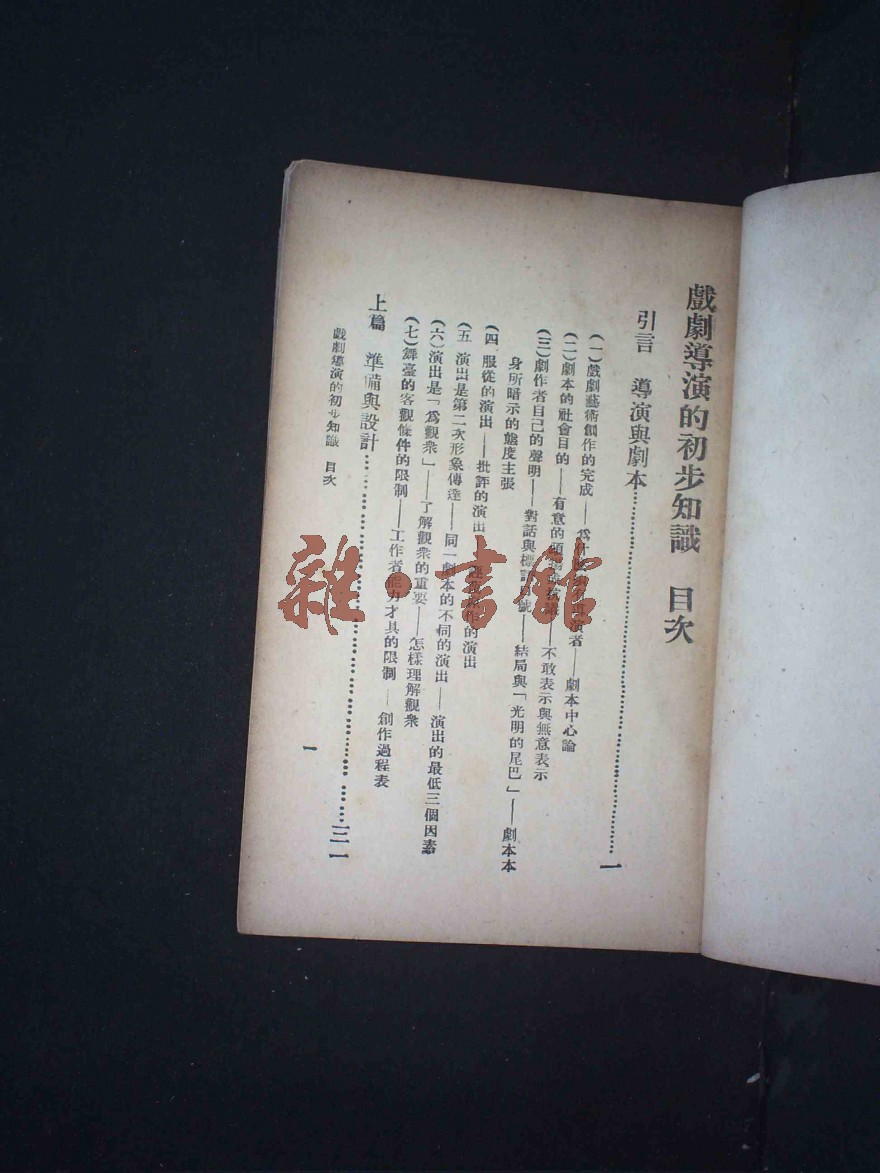 戲劇導演的初步知識　目次
引言　導演與劇本……一
(一)戲劇藝術創作的完成——爲什——劇本中心論
(二)劇本的社會目的——有意的——不敢表示與無意表示
(三)劇作者自己的聲明——對話與標——結局與「光明的尾巴」——劇本本
身所暗示的態度主張
(四 服從的演出——批評的演出　作的演出
(五 演出是第二次形象傳達——同一劇本的不同的演出——演出的最低三個因素
(六)演出是「爲觀衆」——了解觀衆的重要——怎樣理解觀衆
(七)舞臺的客觀條件的限制——工作者能力才具的限制——創作過程表
上篇　準備與設計……三一
戲劇導演的初步知識　目次
一
雜·書館